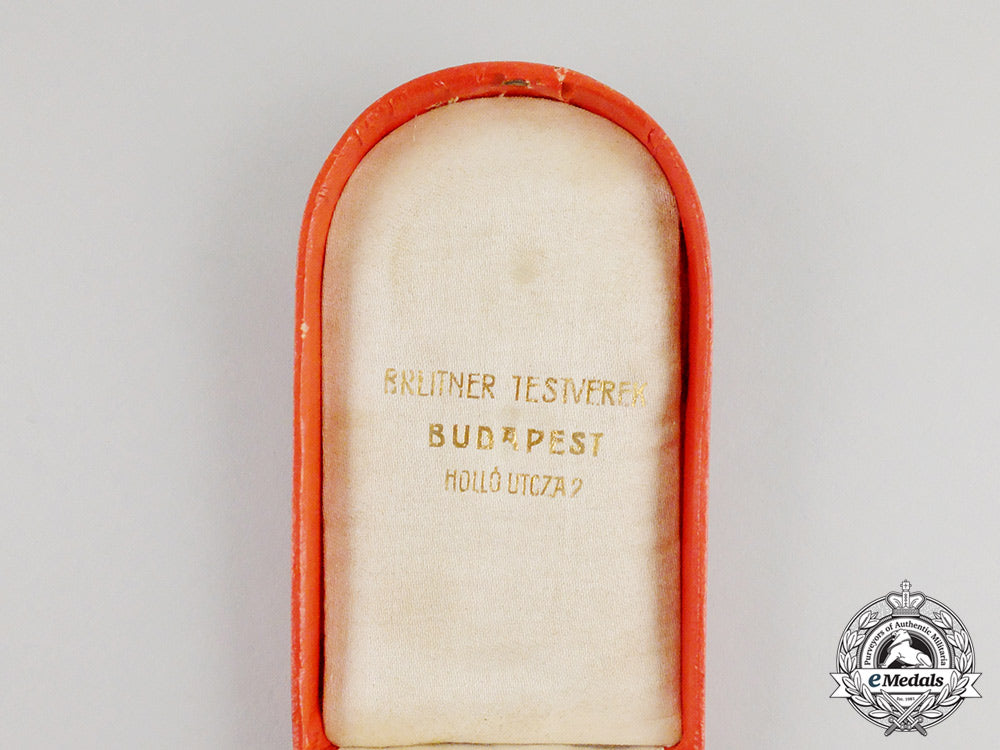 BREITNER TESTVEREK
BUDAPEST
HOLLÓ UTCZA 2
Purveyors of Authentic Militaria
eMedals
Est. 1967